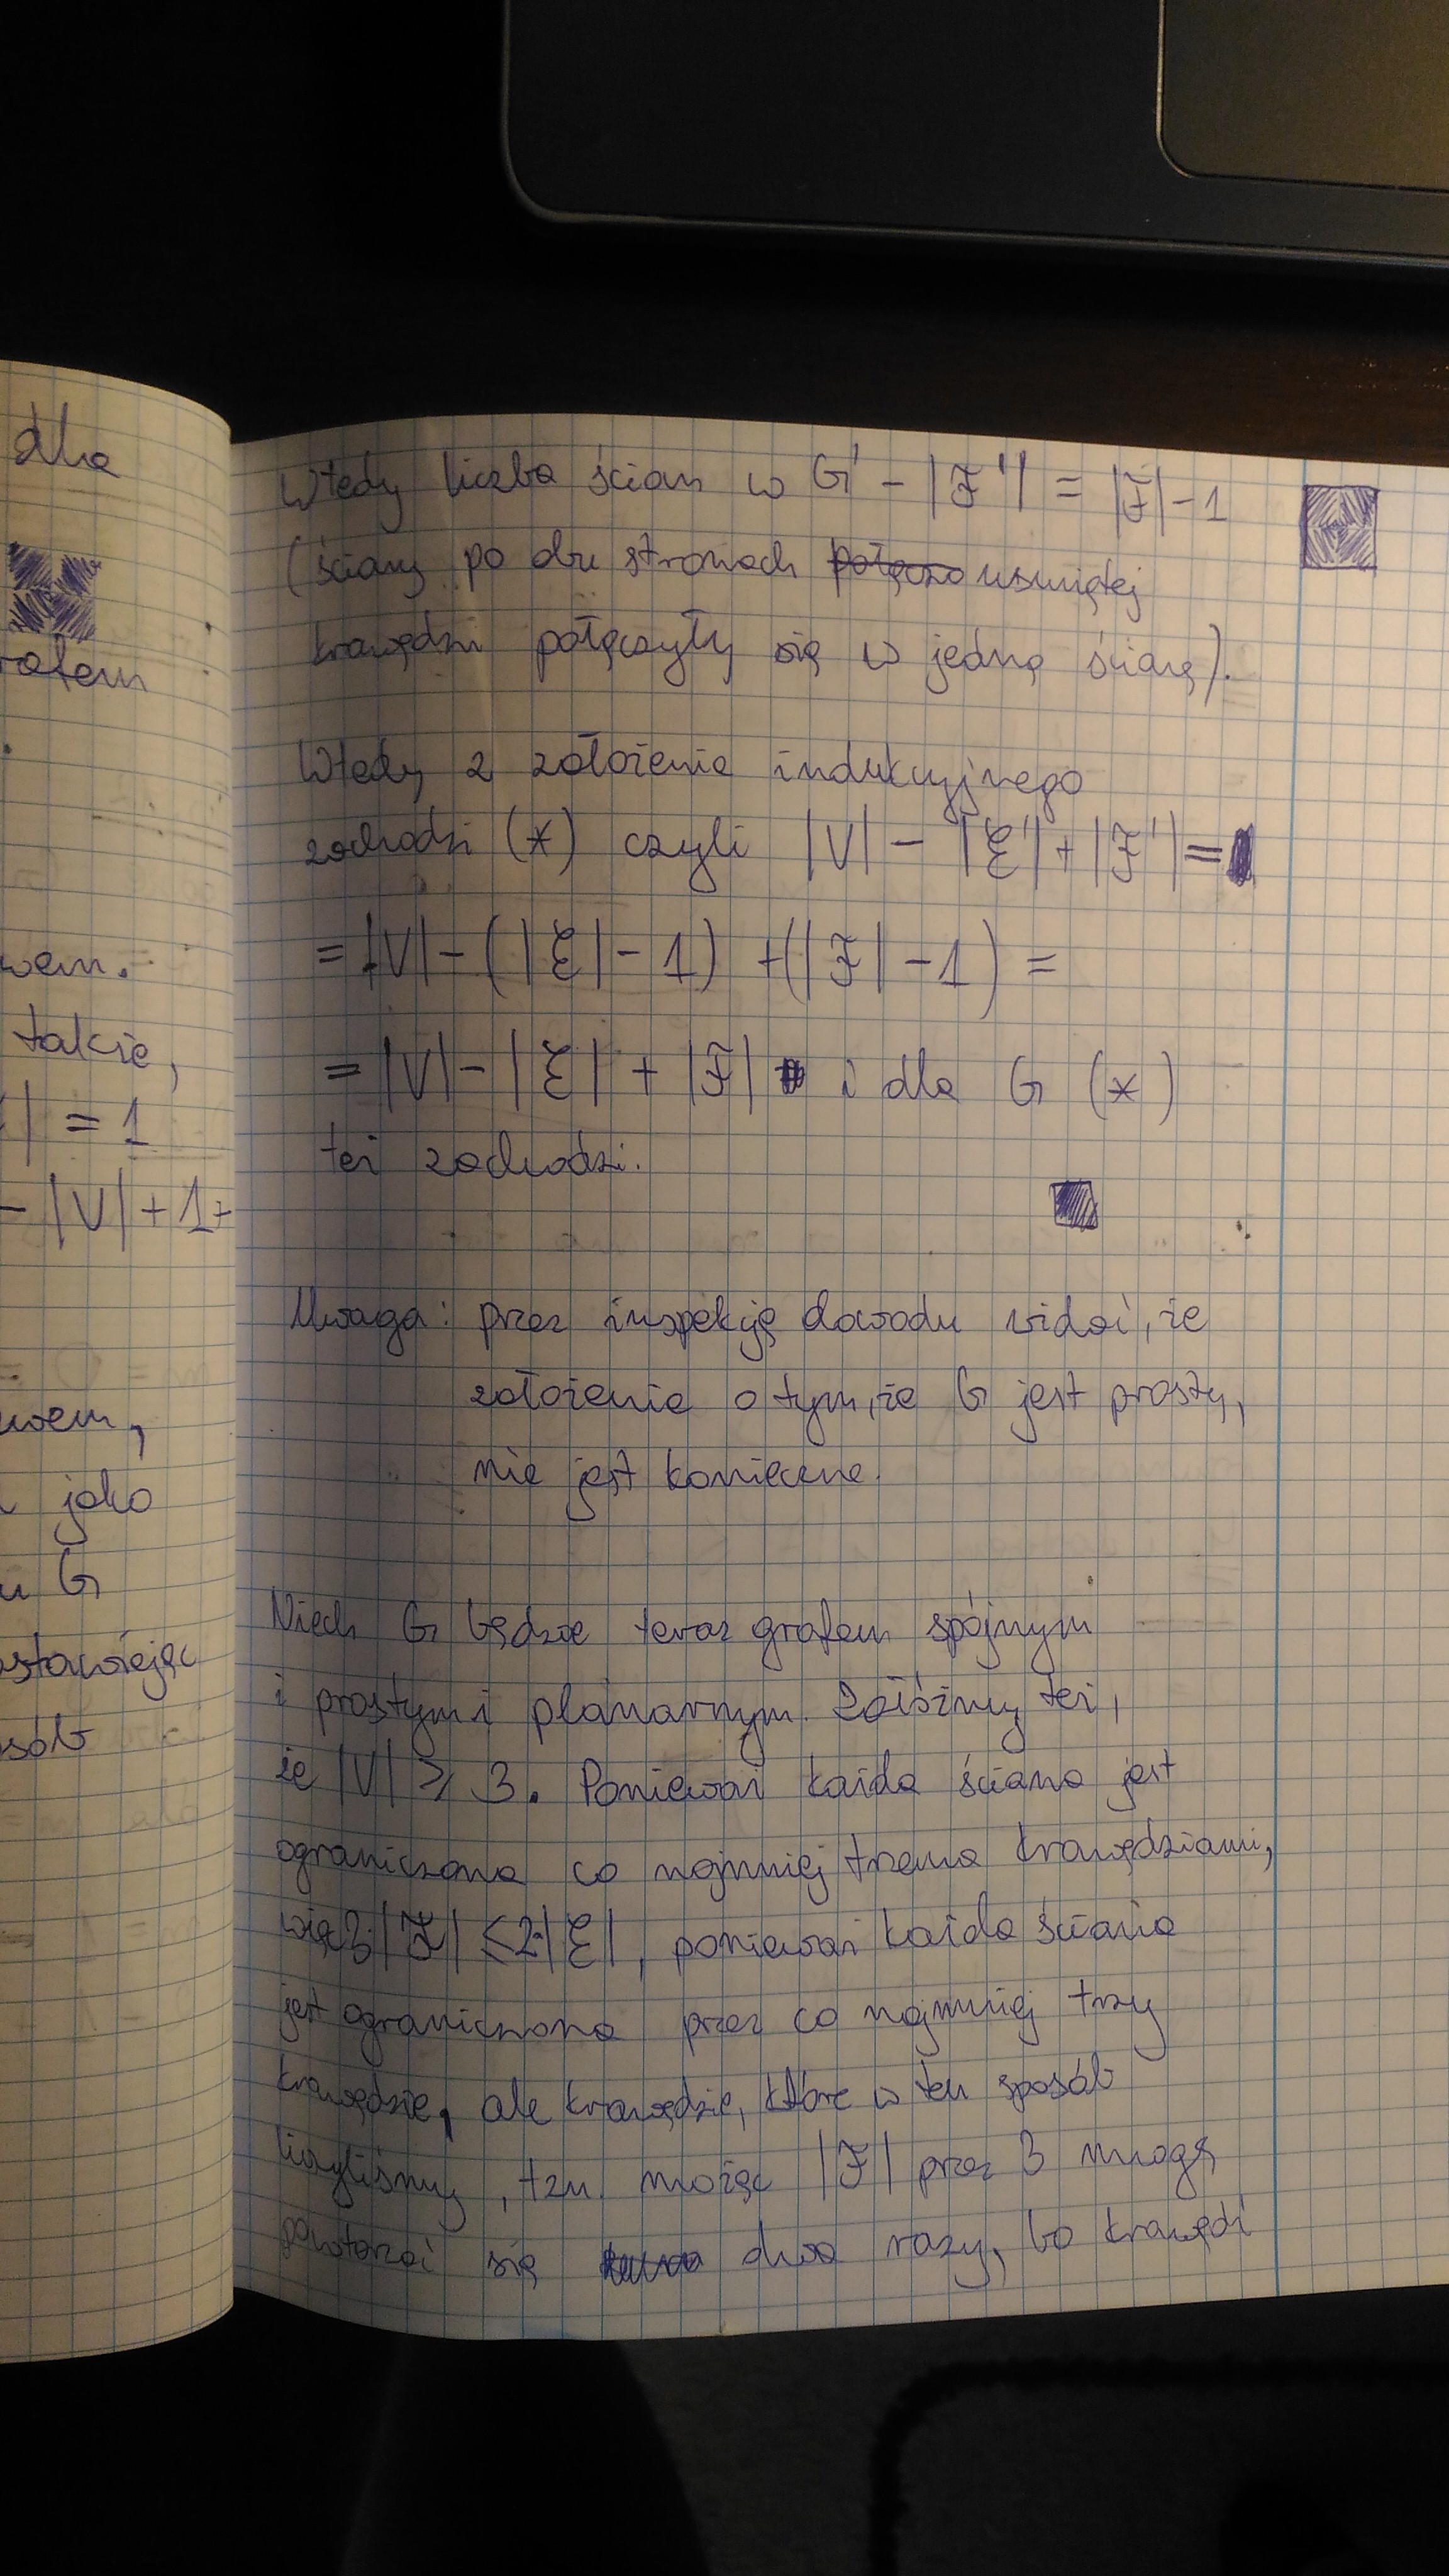 dla
rafem
wem.
takie,
| = 1
- |V| + 1 +
wem,
jako
u G
ostawiając
sób
Wtedy liczba ścian w G' - |F'| = |F| - 1
(ściany po obu stronach usuniętej
krawędzi połączyły się w jedną ścianę).
Wtedy z założenia indukcyjnego
zachodzi (*) czyli |V| - |E'| + |F'| =
= |V| - (|E| - 1) + (|F| - 1) =
= |V| - |E| + |F| i dla G (*)
też zachodzi.
Uwaga: przez inspekcję dowodu widać, że
założenie o tym, że G jest prosty,
nie jest konieczne.
Niech G będzie teraz grafem spójnym
i prostym i planarnym. Załóżmy też,
że |V| ≥ 3. Ponieważ każda ściana jest
ograniczona co najmniej trzema krawędziami,
więc 3·|F| ≤ 2·|E|, ponieważ każda ściana
jest ograniczona przez co najmniej trzy
krawędzie, ale krawędzie, które w ten sposób
liczyliśmy, tzn. mnożąc |F| przez 3 mogą
powtarzać się dwa razy, bo krawędź